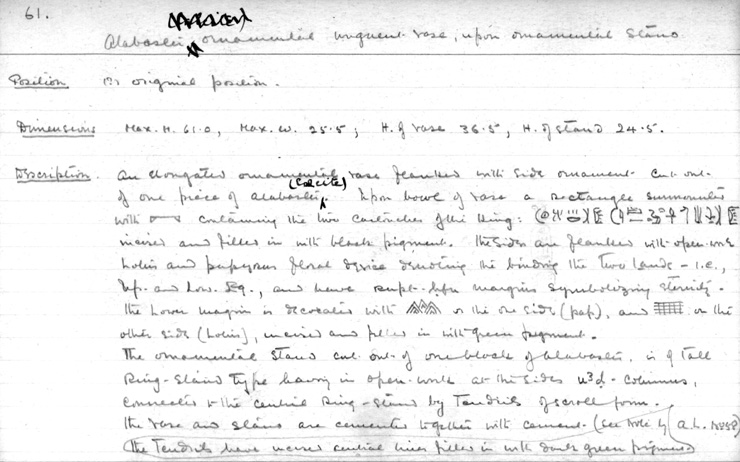 61.
(Calcite)
Alabaster ornamental unguent vase, upon ornamental stand
Position In original position.
Dimensions Max. H. 61.0, Max. W. 25.5; H. of vase 36.5, H. of stand 24.5.
Description. An elongated ornamental vase flanked with side ornament cut out
of one piece of alabaster (calcite). Upon bowl of vase a rectangle surmounted
with containing the two cartouches of the King:
incised and filled in with black pigment. The sides are flanked with open-work
lotus and papyrus floral device denoting the binding the Two Lands - i.e.,
Up. and Low. Eg., and have margins symbolizing eternity.
The lower margin is decorated with on the one side (pap), and on the
other side (lotus), incised and filled in with green pigment.
The ornamental stand cut out of one block of alabaster, is of tall
Ring-stand type having in open-work at the sides columns,
connected to the central ring-stand by tendrils of scroll form.
The vase and stand are cemented together with cement. (See note by A.L.
(The tendrils have incised central lines filled in with dark green pigment)